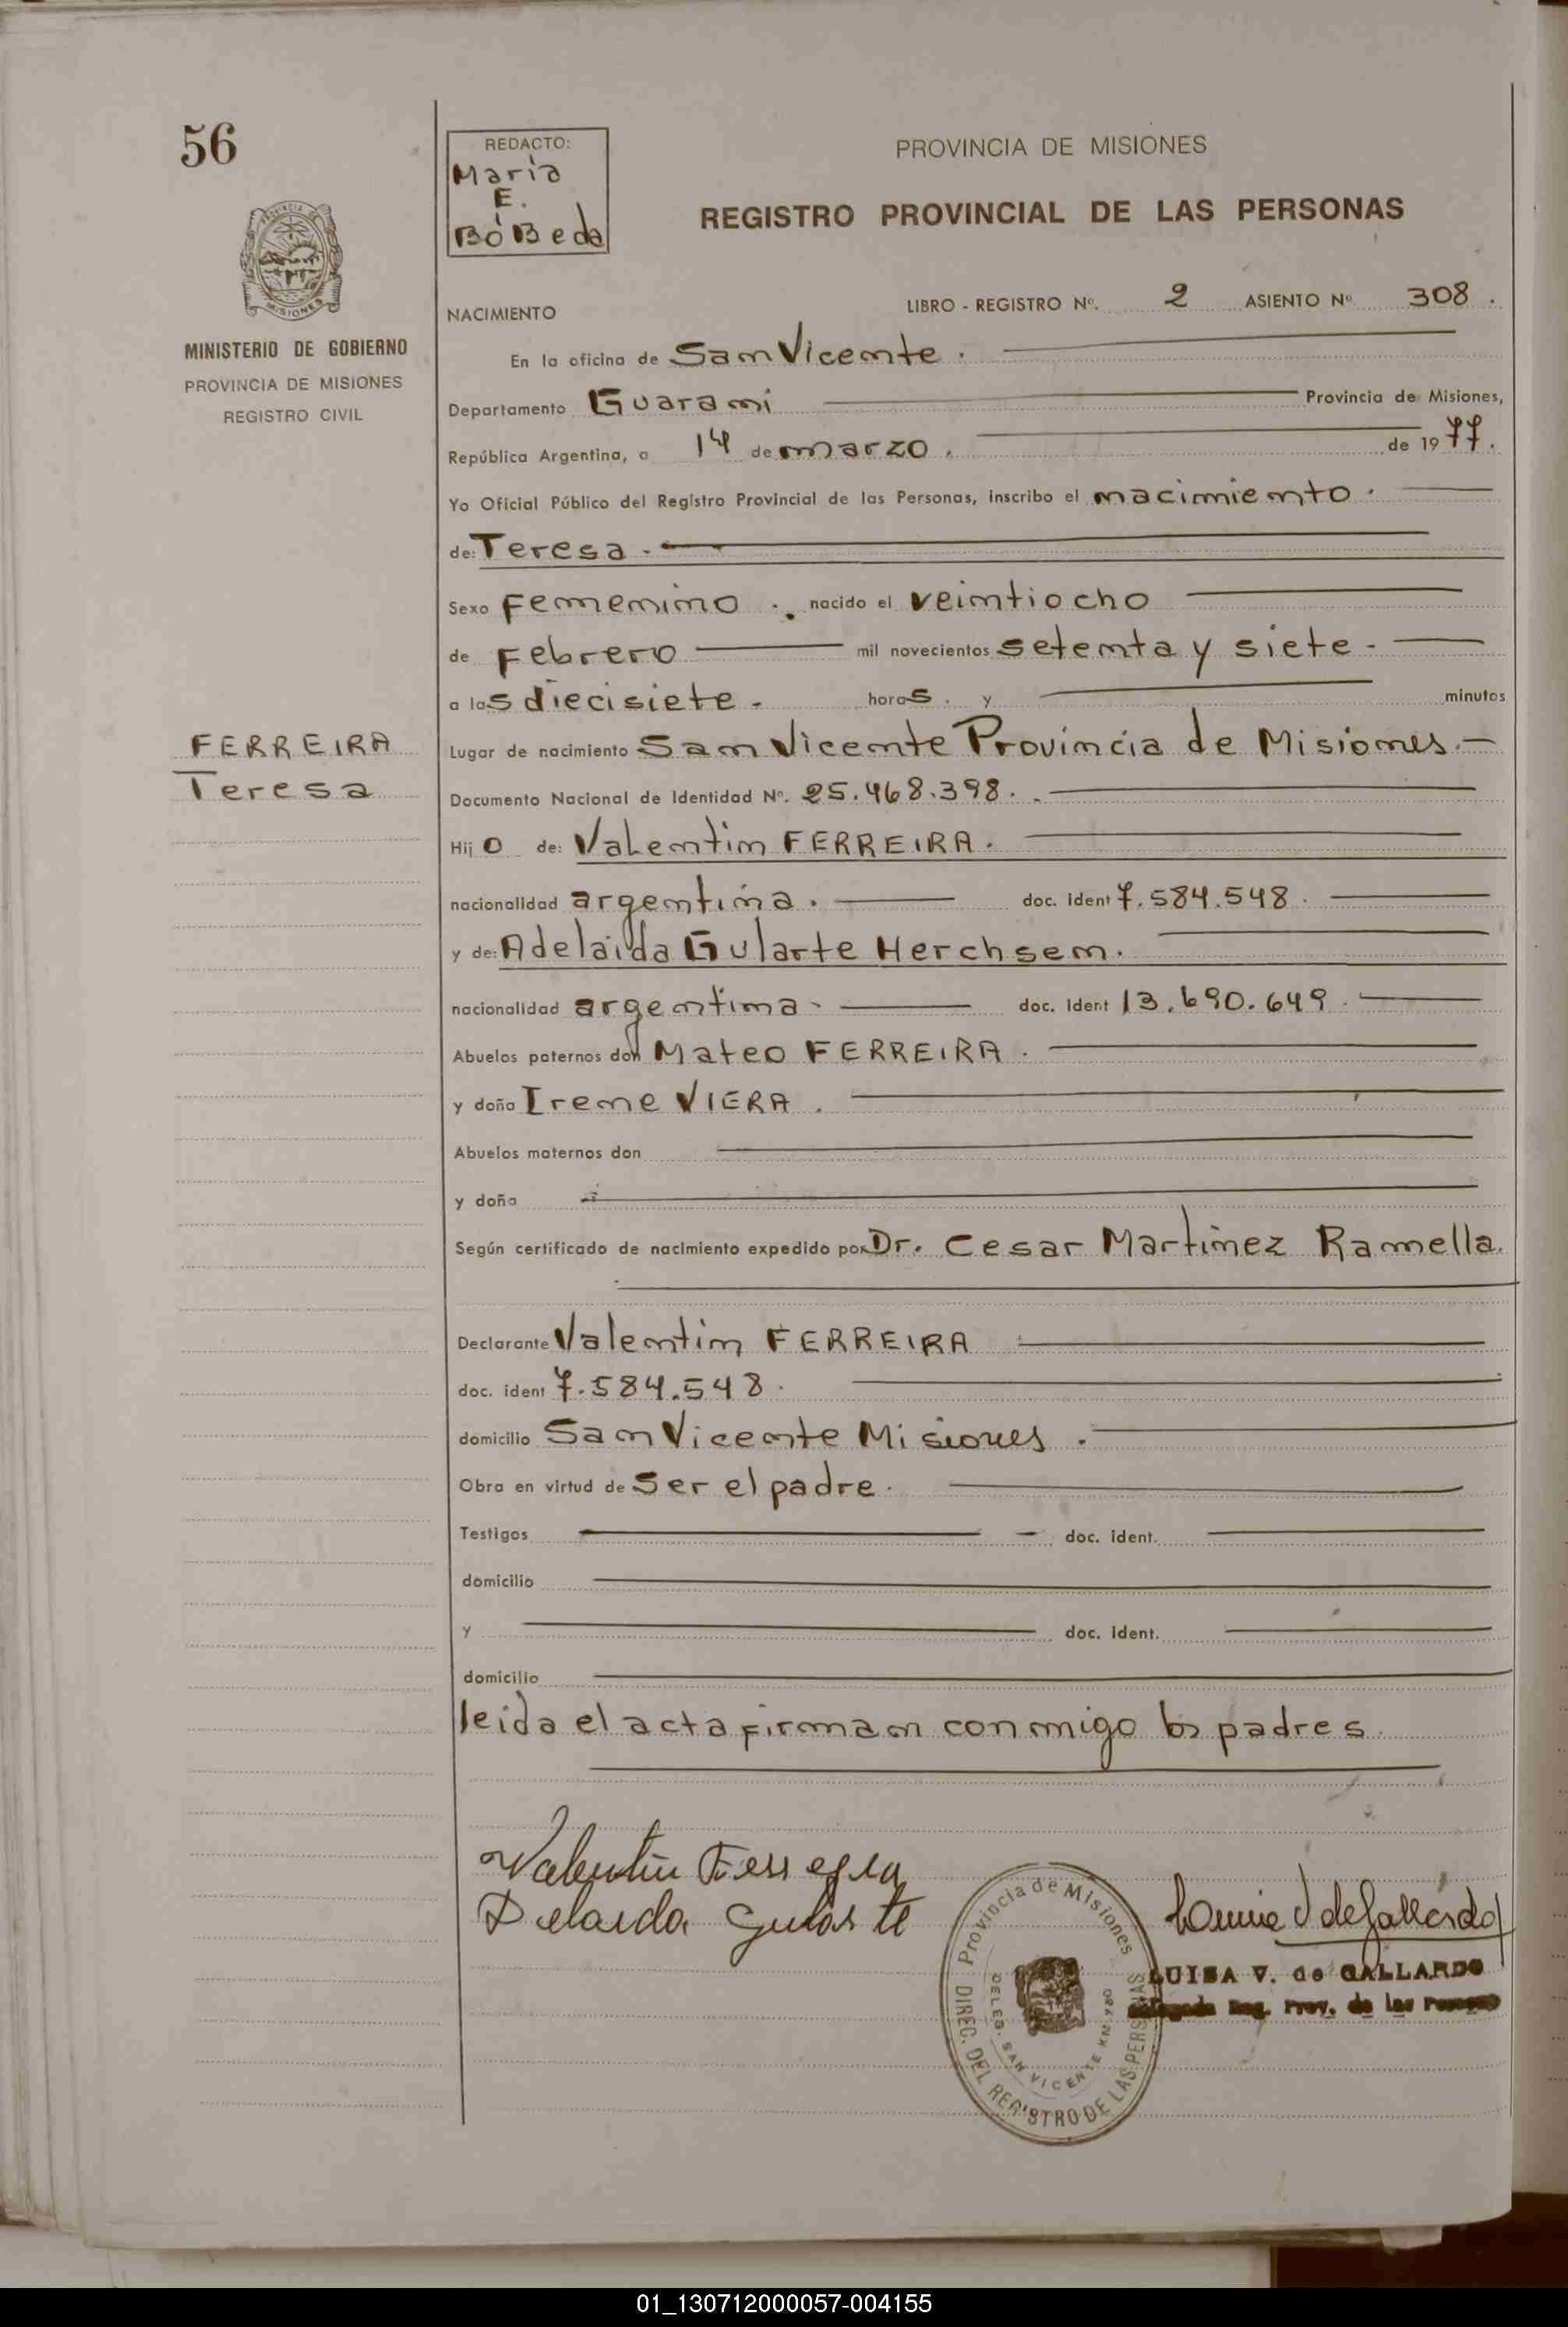 56
REDACTO:
Maria
E.
BóBeda
PROVINCIA DE MISIONES
REGISTRO PROVINCIAL DE LAS PERSONAS
PROVINCIA DE MISIONES
MINISTERIO DE GOBIERNO
PROVINCIA DE MISIONES
REGISTRO CIVIL
NACIMIENTO LIBRO - REGISTRO Nº. 2 ASIENTO Nº 308.
En la oficina de San Vicente.
Departamento Guarani Provincia de Misiones,
República Argentina, a 14 de marzo. de 1977.
Yo Oficial Público del Registro Provincial de las Personas, inscribo el nacimiento.
de: Teresa.
Sexo Femenino. nacido el veintiocho
de Febrero mil novecientos setenta y siete.
a las diecisiete. horas. y minutos
FERREIRA
Teresa
Lugar de nacimiento San Vicente Provincia de Misiones.
Documento Nacional de Identidad Nº. 25.468.398.
Hijo de: Valentin FERREIRA.
nacionalidad argentina. doc. ident 7.584.548.
y de: Adelaida Gularte Herchsem.
nacionalidad argentina. doc. ident 13.690.649.
Abuelos paternos don Mateo FERREIRA.
y doña Irene VIERA.
Abuelos maternos don
y doña
Según certificado de nacimiento expedido por Dr. Cesar Martinez Ramella.
Declarante Valentin FERREIRA
doc. ident 7.584.548.
domicilio San Vicente Misiones.
Obra en virtud de Ser el padre.
Testigos doc. ident.
domicilio
y doc. ident.
domicilio
leida el acta firman conmigo los padres.
Valentin Ferreyra
Delaida Gularte
de Gallardo
LUISA V. de GALLARDO
Reg. Prov. de las Personas
Provincia de Misiones
DIREC. DEL REGISTRO DE LAS PERSONAS
DELEG. SAN VICENTE KM. 980
01_130712000057-004155